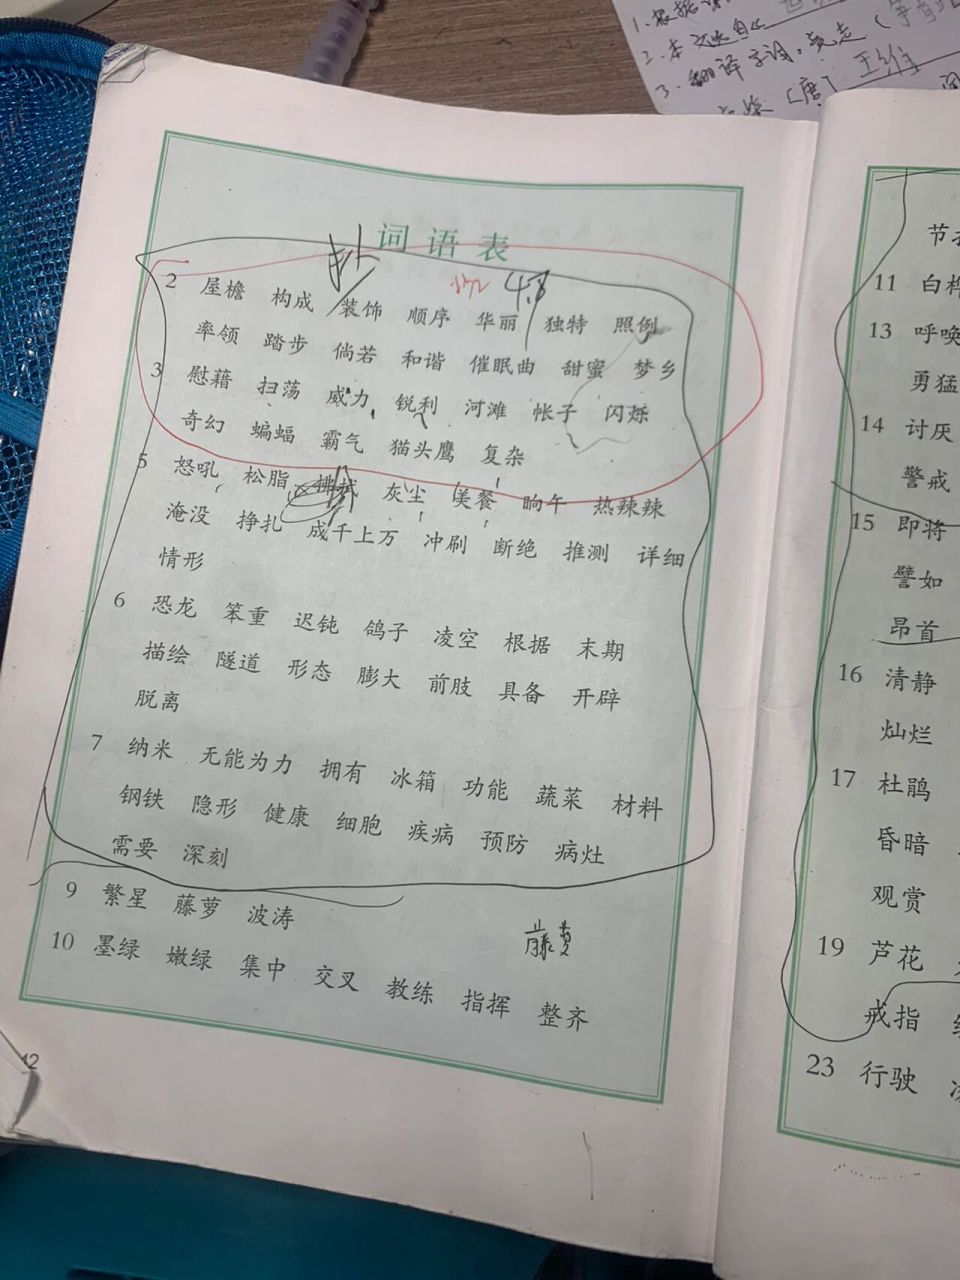 1.根据
2.本文选自《
3.翻译字词:
〔唐〕王维
词语表
抄
4.8
2 屋檐 构成 装饰 顺序 华丽 独特 照例
率领 踏步 倘若 和谐 催眠曲 甜蜜 梦乡
3 慰藉 扫荡 威力 锐利 河滩 帐子 闪烁
奇幻 蝙蝠 霸气 猫头鹰 复杂
5 怒吼 松脂 拂拭 灰尘 美餐 晌午 热辣辣
淹没 挣扎 成千上万 冲刷 断绝 推测 详细
情形
6 恐龙 笨重 迟钝 鸽子 凌空 根据 末期
描绘 隧道 形态 膨大 前肢 具备 开辟
脱离
7 纳米 无能为力 拥有 冰箱 功能 蔬菜 材料
钢铁 隐形 健康 细胞 疾病 预防 病灶
需要 深刻
9 繁星 藤萝 波涛
藤萝
10 墨绿 嫩绿 集中 交叉 教练 指挥 整齐
12
11 白桦
13 呼唤
勇猛
14 讨厌
警戒
15 即将
譬如
昂首
16 清静
灿烂
17 杜鹃
昏暗
观赏
19 芦花
戒指
23 行驶